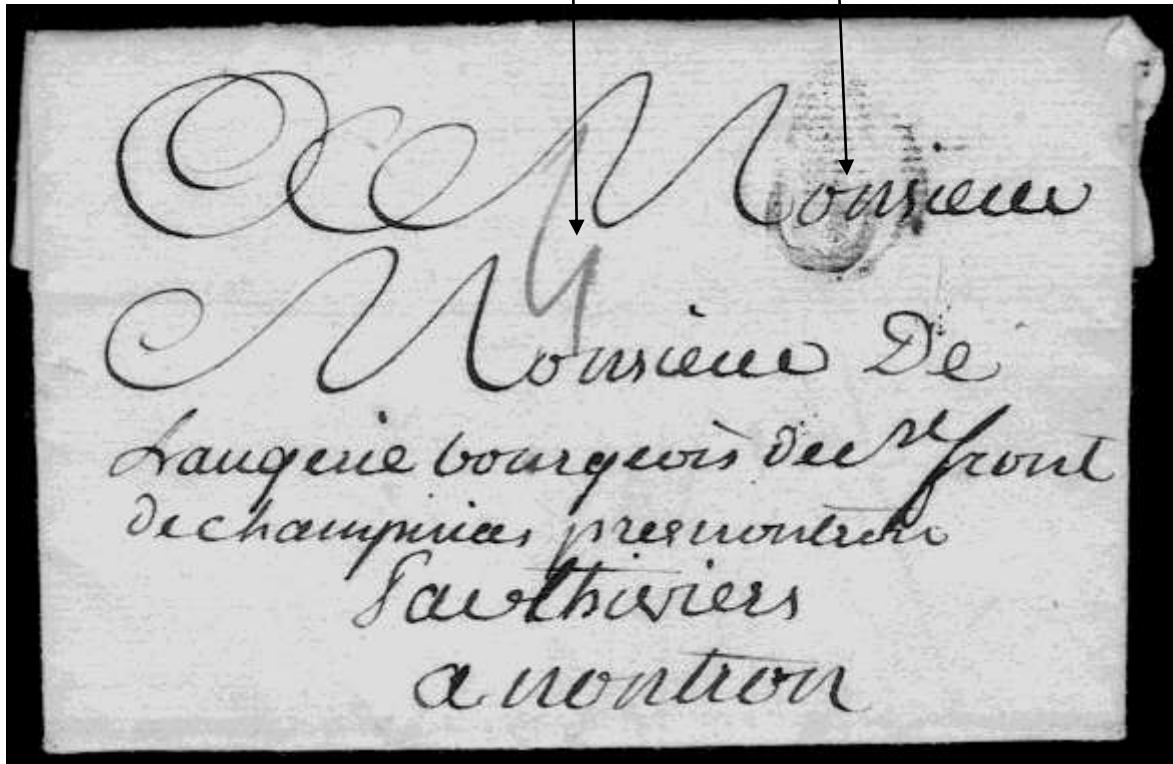 A Monsieur
Monsieur De
Laugerie bourgeois de St front
de champnier pres nontron
Par thiviers
a nontron